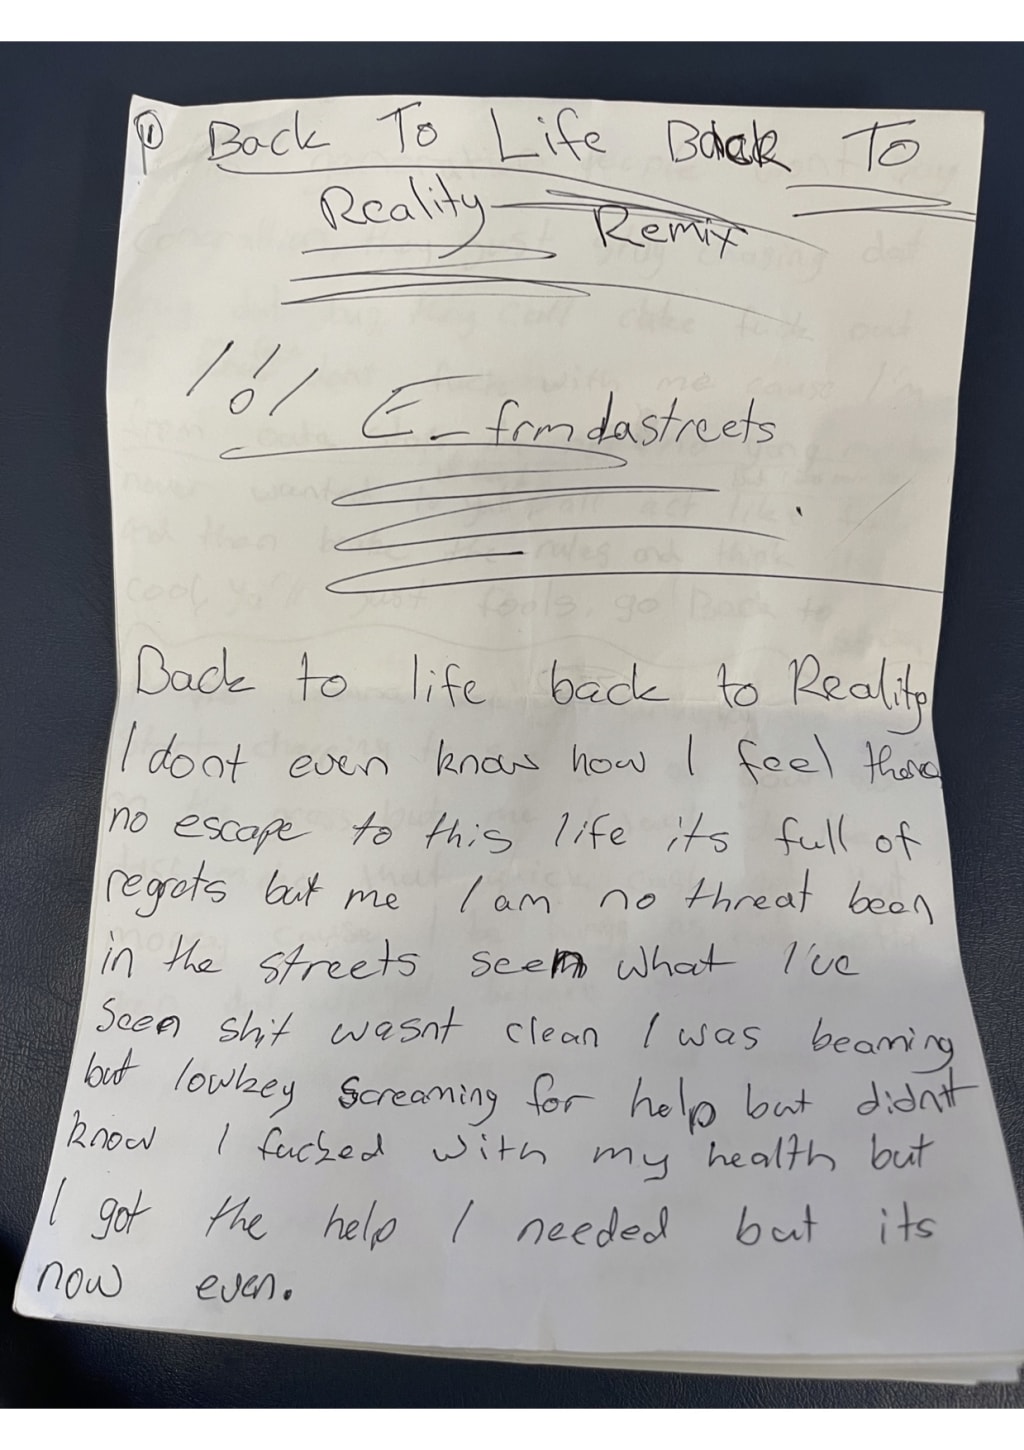 Back To Life Back To
Reality Remix
E-frmdastreets
Back to life back to Reality
I dont even know how I feel theres
no escape to this life its full of
regrets but me I am no threat been
in the streets seen what I've
seen shit wasnt clean I was beaming
but lowkey screaming for help but didnt
know I fucked with my health but
I got the help I needed but its
now even.